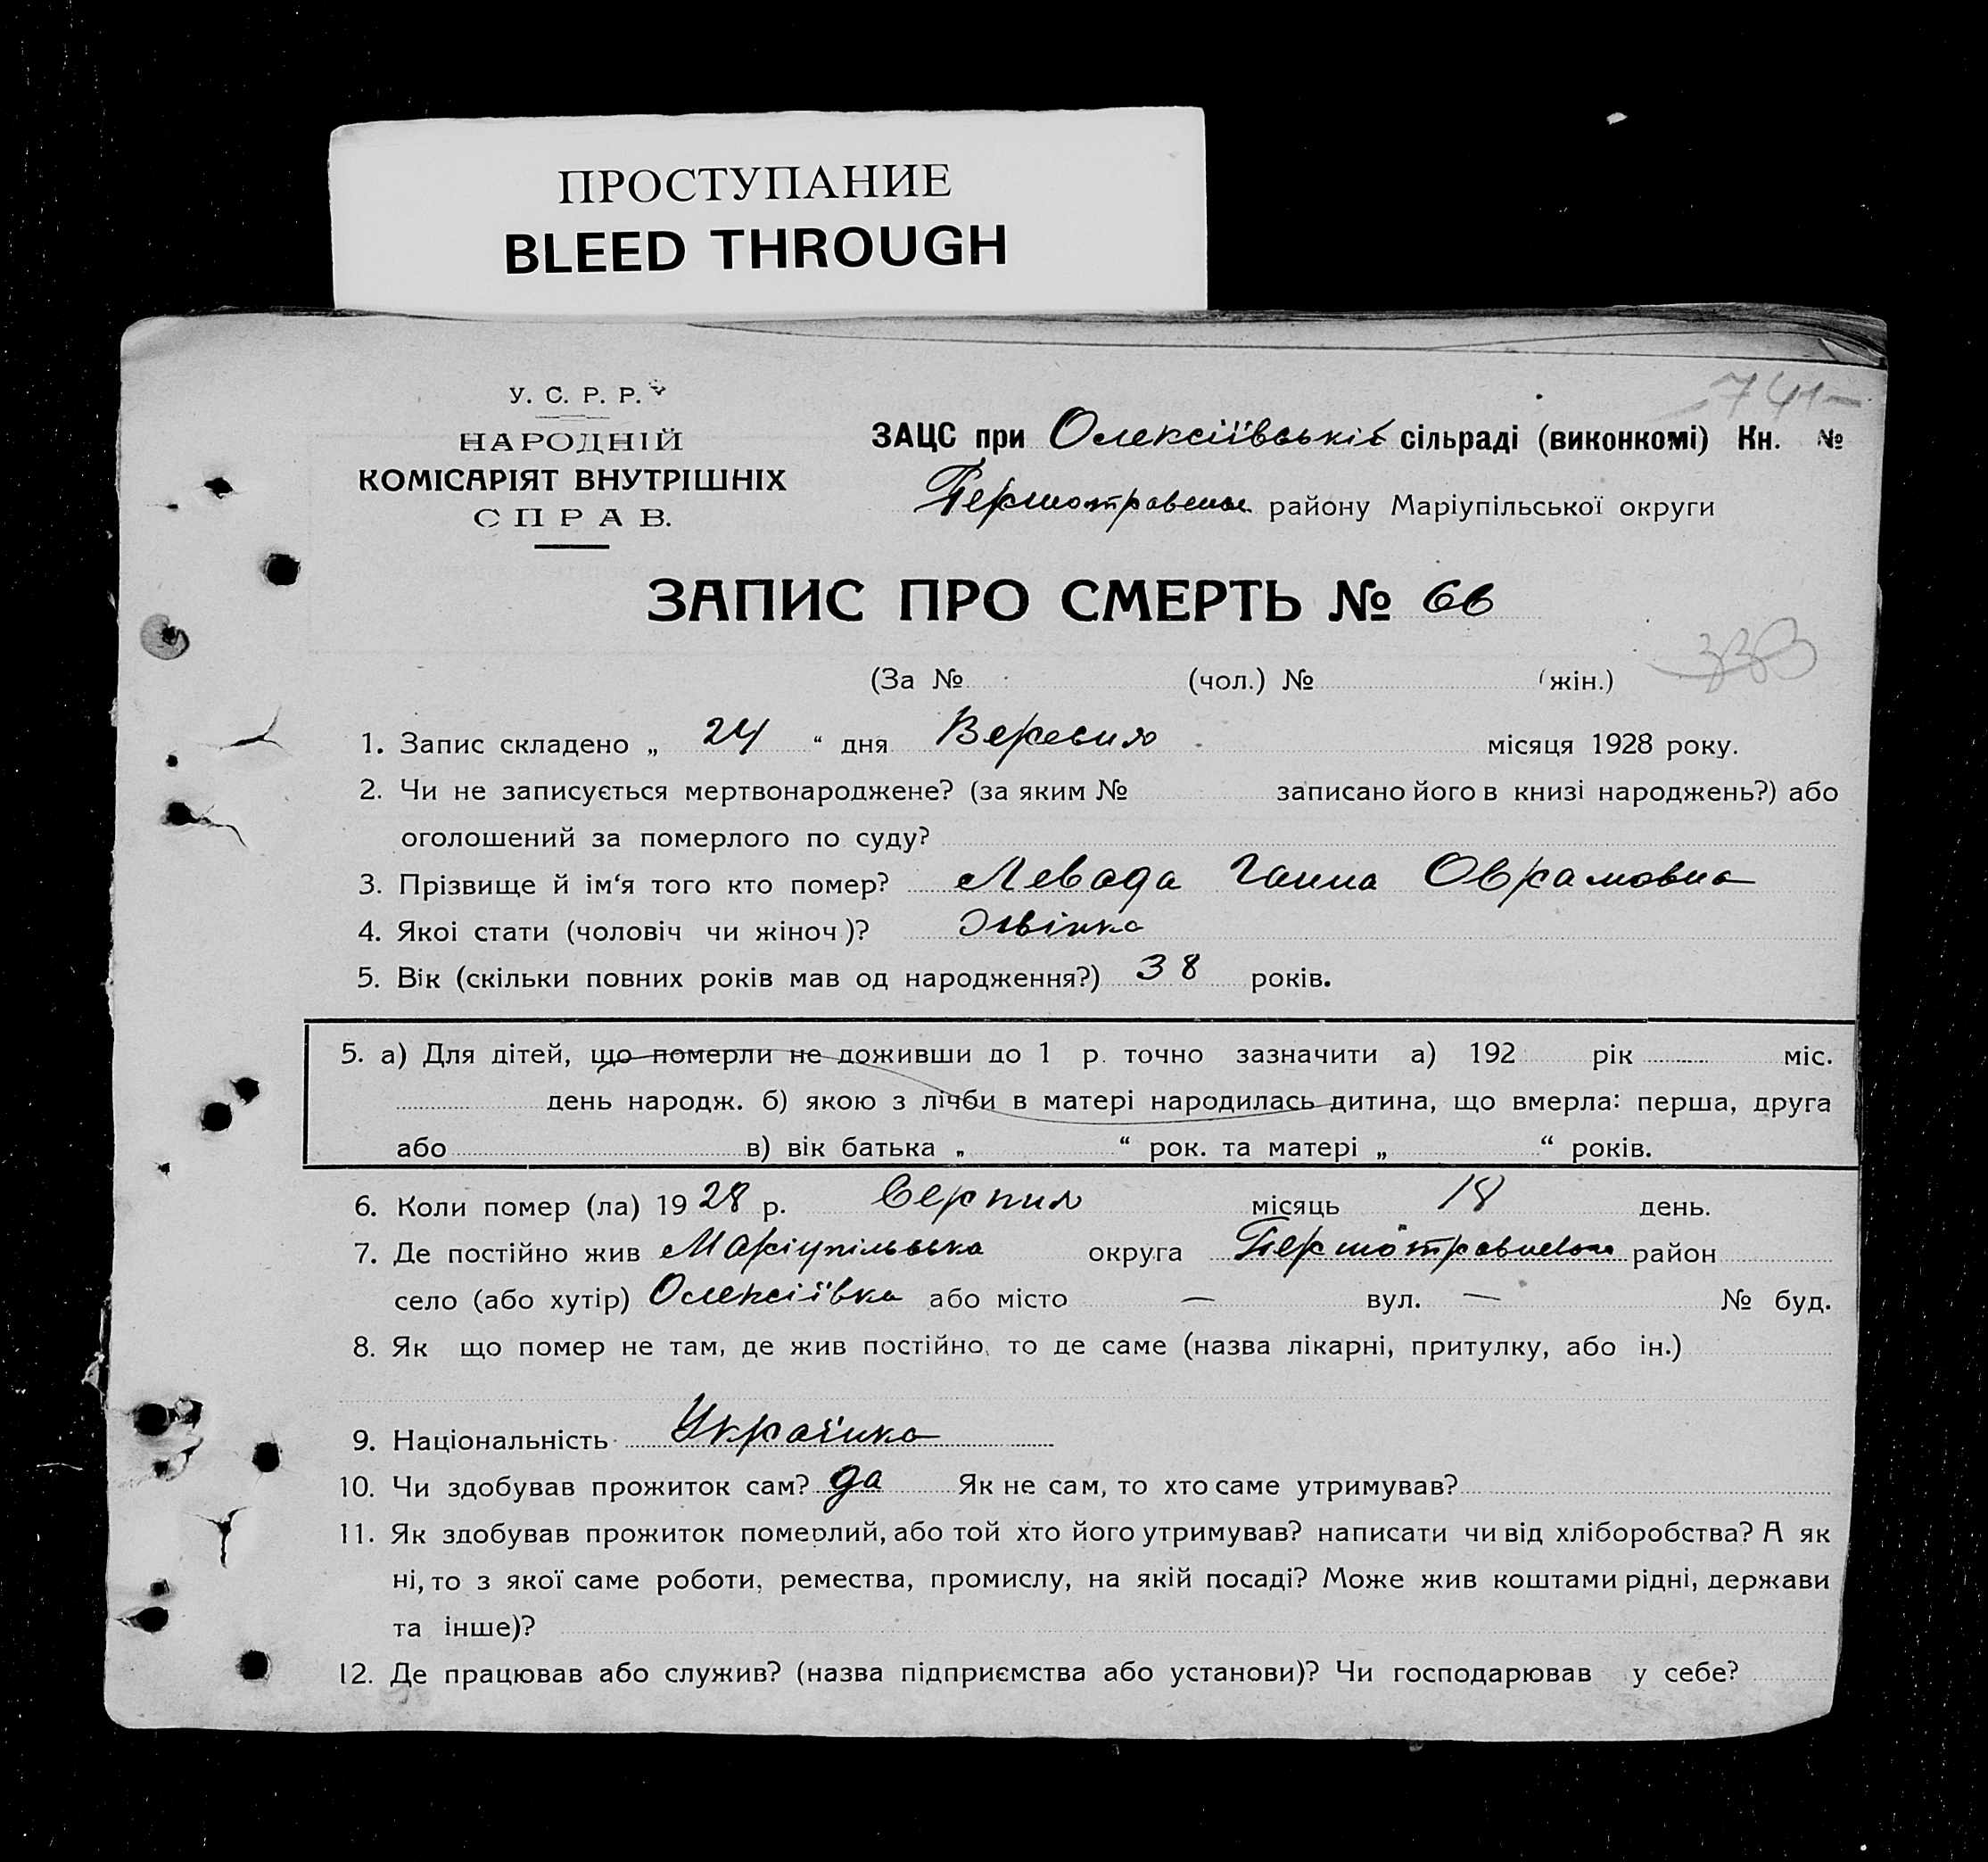 ПРОСТУПАНИЕ
BLEED THROUGH
741
У. С. Р. Р.
НАРОДНІЙ
КОМІСАРІЯТ ВНУТРІШНІХ
СПРАВ.
ЗАЦС при Олексіївській сільраді (виконкомі) Кн. №
Першотравенськ. району Маріупільської округи
ЗАПИС ПРО СМЕРТЬ № 66
(За № (чол.) № (жін.)
1. Запис складено „ 24 “ дня Вересня місяця 1928 року.
2. Чи не записується мертвонароджене? (за яким № записано його в книзі народжень?) або
оголошений за померлого по суду?
3. Прізвище й ім‘я того кто помер? Левада Ганна Оврамовна
4. Якоі стати (чоловіч чи жіноч)? Жвінка
5. Вік (скільки повних років мав од народження?) 38 років.
5. а) Для дітей, що померли не доживши до 1 р. точно зазначити а) 192 рік міс.
день народж. б) якою з лічби в матері народилась дитина, що вмерла: перша, друга
або в) вік батька „ “ рок. та матері „ “ років.
6. Коли помер (ла) 1928 р. Серпня місяць 18 день.
7. Де постійно жив Маріупільська округа район
село (або хутір) Олексіївка або місто — вул. — № буд.
8. Як що помер не там, де жив постійно, то де саме (назва лікарні, притулку, або ін.)
9. Національність Україинка
10. Чи здобував прожиток сам? да Як не сам, то хто саме утримував?
11. Як здобував прожиток померлий, або той хто його утримував? написати чи від хліборобства? А як
ні, то з якої саме роботи, ремества, промислу, на якій посаді? Може жив коштами рідні, держави
та інше)?
12. Де працював або служив? (назва підприємства або установи)? Чи господарював у себе?